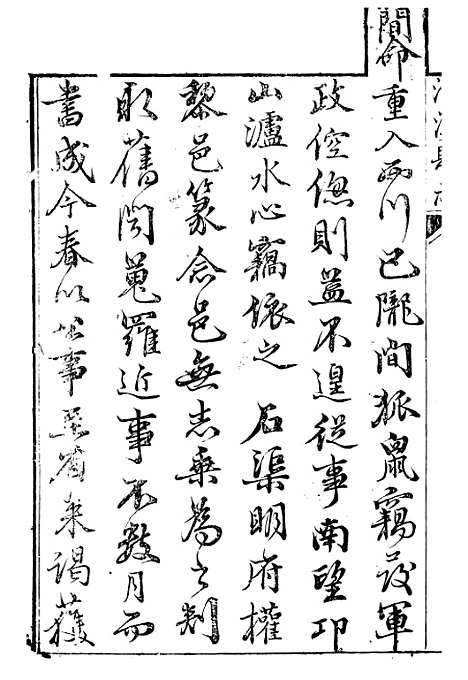 簡命重入西川巴隴間狐鼠竊發軍
政倥傯則益不遑從事南望邛
山瀘水心竊懷之　石渠明府權
黎邑篆念邑無志乘為之刿
取舊聞蒐羅近事不數月而
書成今春以公事至省来謁獲